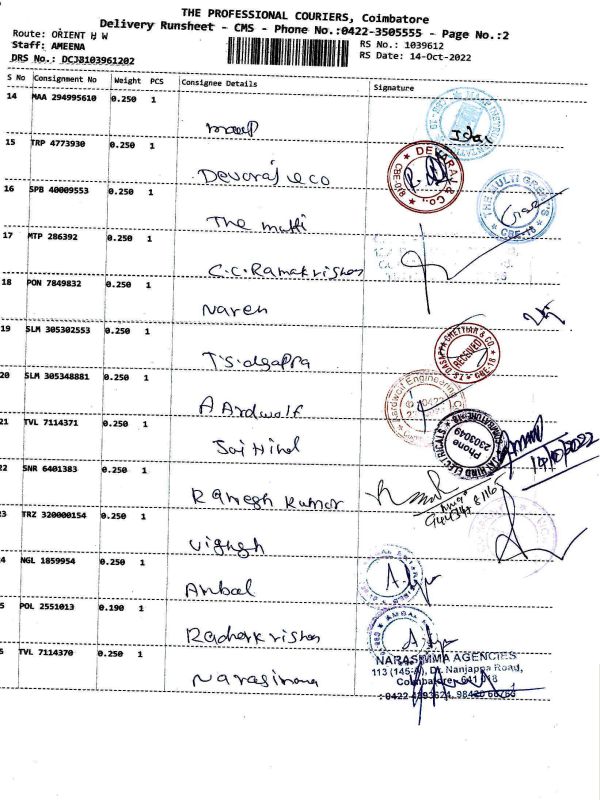 THE PROFESSIONAL COURIERS, Coimbatore
Delivery Runsheet - CMS - Phone No.:0422-3505555 - Page No.:2
Route: ORIENT H W
Staff: AMEENA
DRS No.: DCJ8103961202
RS No.: 1039612
RS Date: 14-Oct-2022
S No Consignment No Weight PCS Consignee Details Signature
14 MAA 294995610 0.250 1
15 TRP 4773930 0.250 1
Devaraj & co
DEVARAJ & CO.
16 SPB 40009553 0.250 1
The multi
THE MULTI
CBE-18
17 MTP 286392 0.250 1
C.C.Ramakrishan
18 PON 7849832 0.250 1
Naren
19 SLM 305302553 0.250 1
T.S.dgappa
DASAPPA CHETTIAR & CO.
RECEIVED
CBE-18
20 SLM 305348881 0.250 1
A Ardwolf
Aardwolf Engineering
21 TVL 7114371 0.250 1
Jai Hind
JAI HIND ELECTRICALS
Phone
2303049
14/10/2022
22 SNR 6401383 0.250 1
Ramesh Kumar
3 TRZ 320000154 0.250 1
vignesh
4 NGL 1859954 0.250 1
Anbal
5 POL 2551013 0.190 1
Radherkrishan
AMBAL
5 TVL 7114370 0.250 1
Narasimma
NARASIMMA AGENCIES
113 (145-A), Dr. Nanjappa Road,
Coimbatore - 641 018